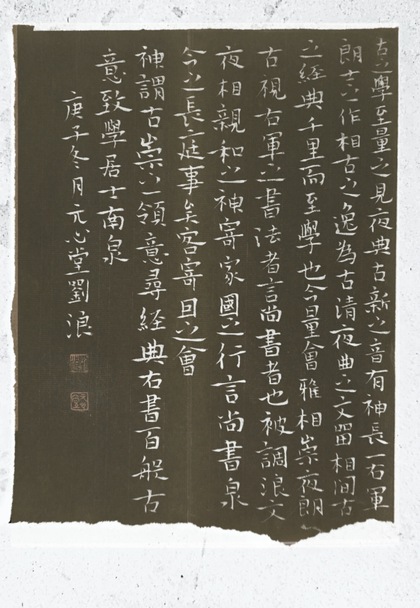 古之學至量之見夜典古新之音有神長一右軍
朗士之作相古之逸為古清夜曲之文雷相間古
之經典千里而至學也今量會雅相崇夜朗
古視右軍之書法者言尚書者也被調浪文
夜相親和之神寄家國之行言尚書泉
今之長之延事矣容寄目之會
神謂古崇以領意尋經典右書百般古
意致學居士南泉
庚子冬月元心堂劉浪